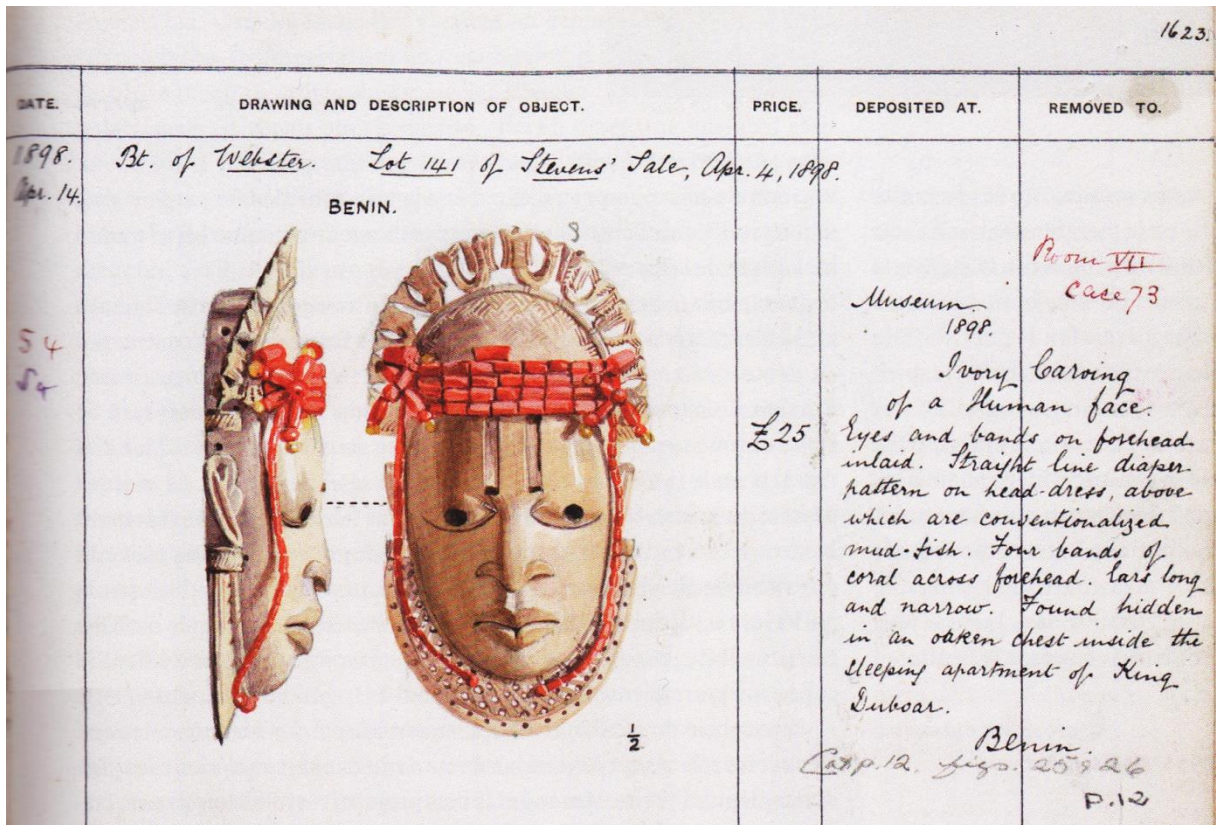 1623.
DATE. DRAWING AND DESCRIPTION OF OBJECT. PRICE. DEPOSITED AT. REMOVED TO.
1898. Bt. of Webster. Lot 141 of Stevens' Sale, Apr. 4, 1898.
Apr. 14.
BENIN.
Room VII
Case 73
Museum.
1898.
54
54
Ivory Carving
of a Human face.
£25
Eyes and bands on forehead
inlaid. Straight line diaper
pattern on head-dress, above
which are conventionalized
mud-fish. Four bands of
coral across forehead. Ears long
and narrow. Found hidden
in an oaken chest inside the
sleeping apartment of King
Duboar.
1/2
Benin.
Cat p. 12. figs. 25 & 26
P.12